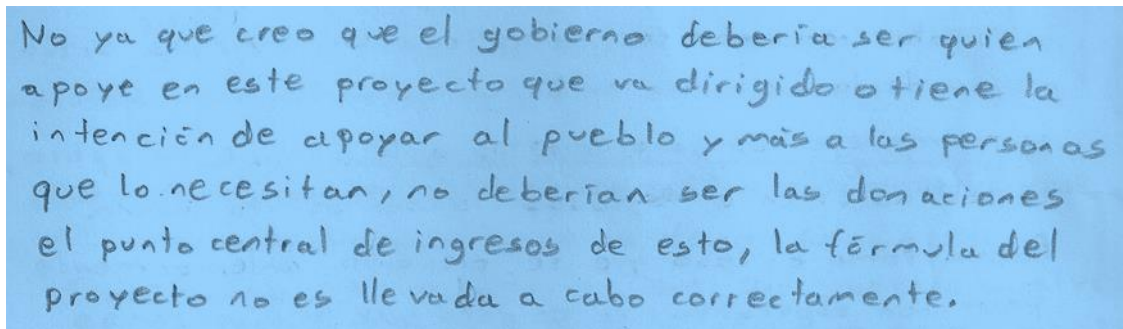 No ya que creo que el gobierno debería ser quien
apoye en este proyecto que va dirigido o tiene la
intención de apoyar al pueblo y más a las personas
que lo necesitan, no deberían ser las donaciones
el punto central de ingresos de esto, la fórmula del
proyecto no es llevada a cabo correctamente.